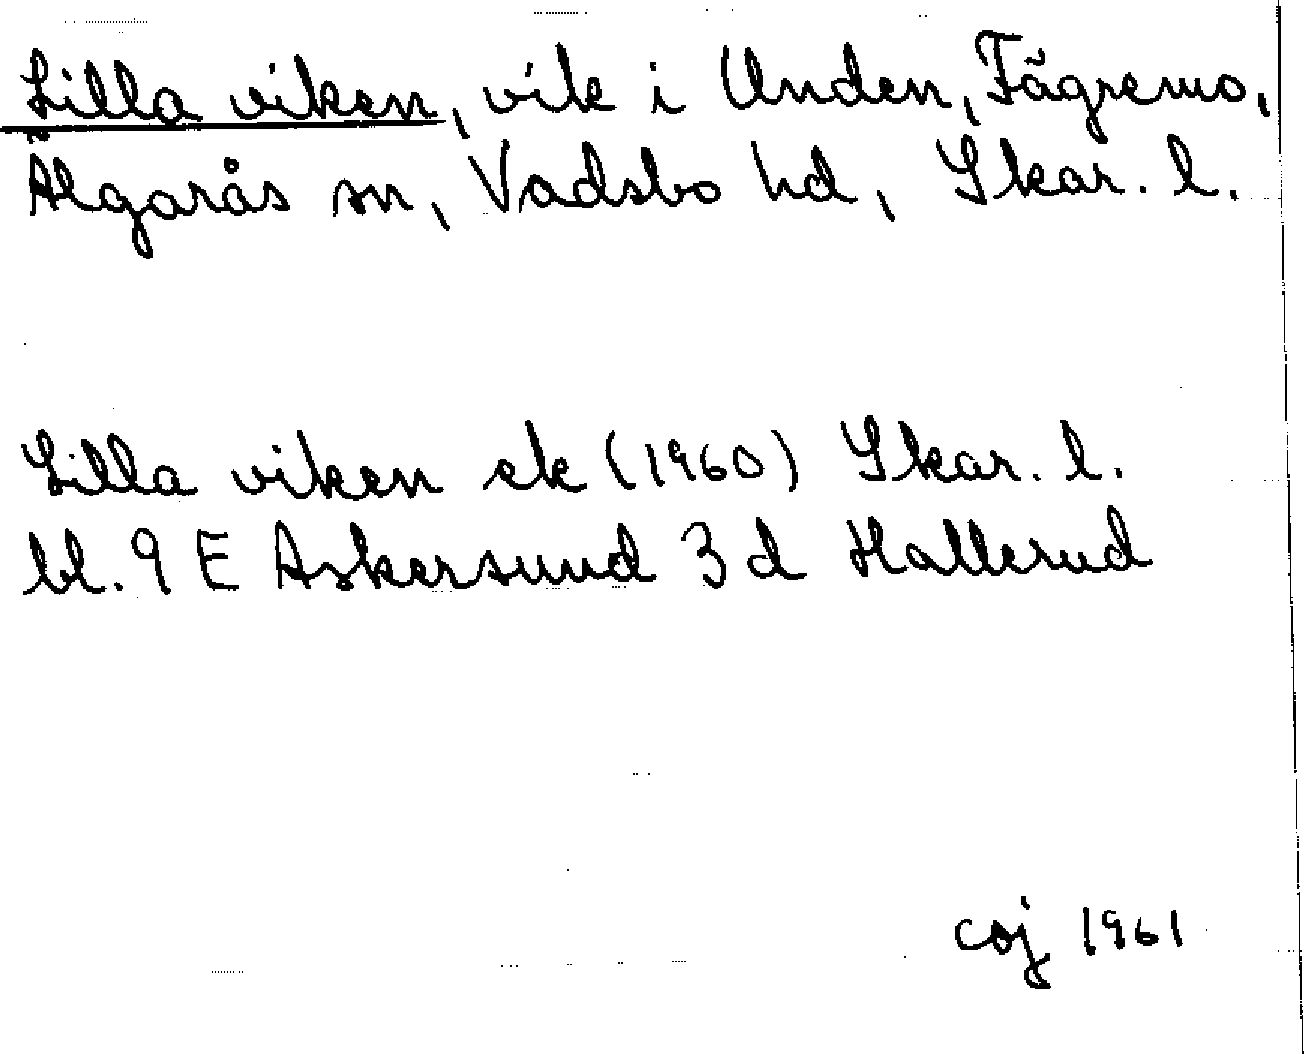 Lilla viken, vik i Unden, Fägremo,
Älgarås sn, Vadsbo hd, Skar. l.
Lilla viken ek (1960) Skar. l.
bl. 9 E Askersund 3 d Hallerud
coj 1961